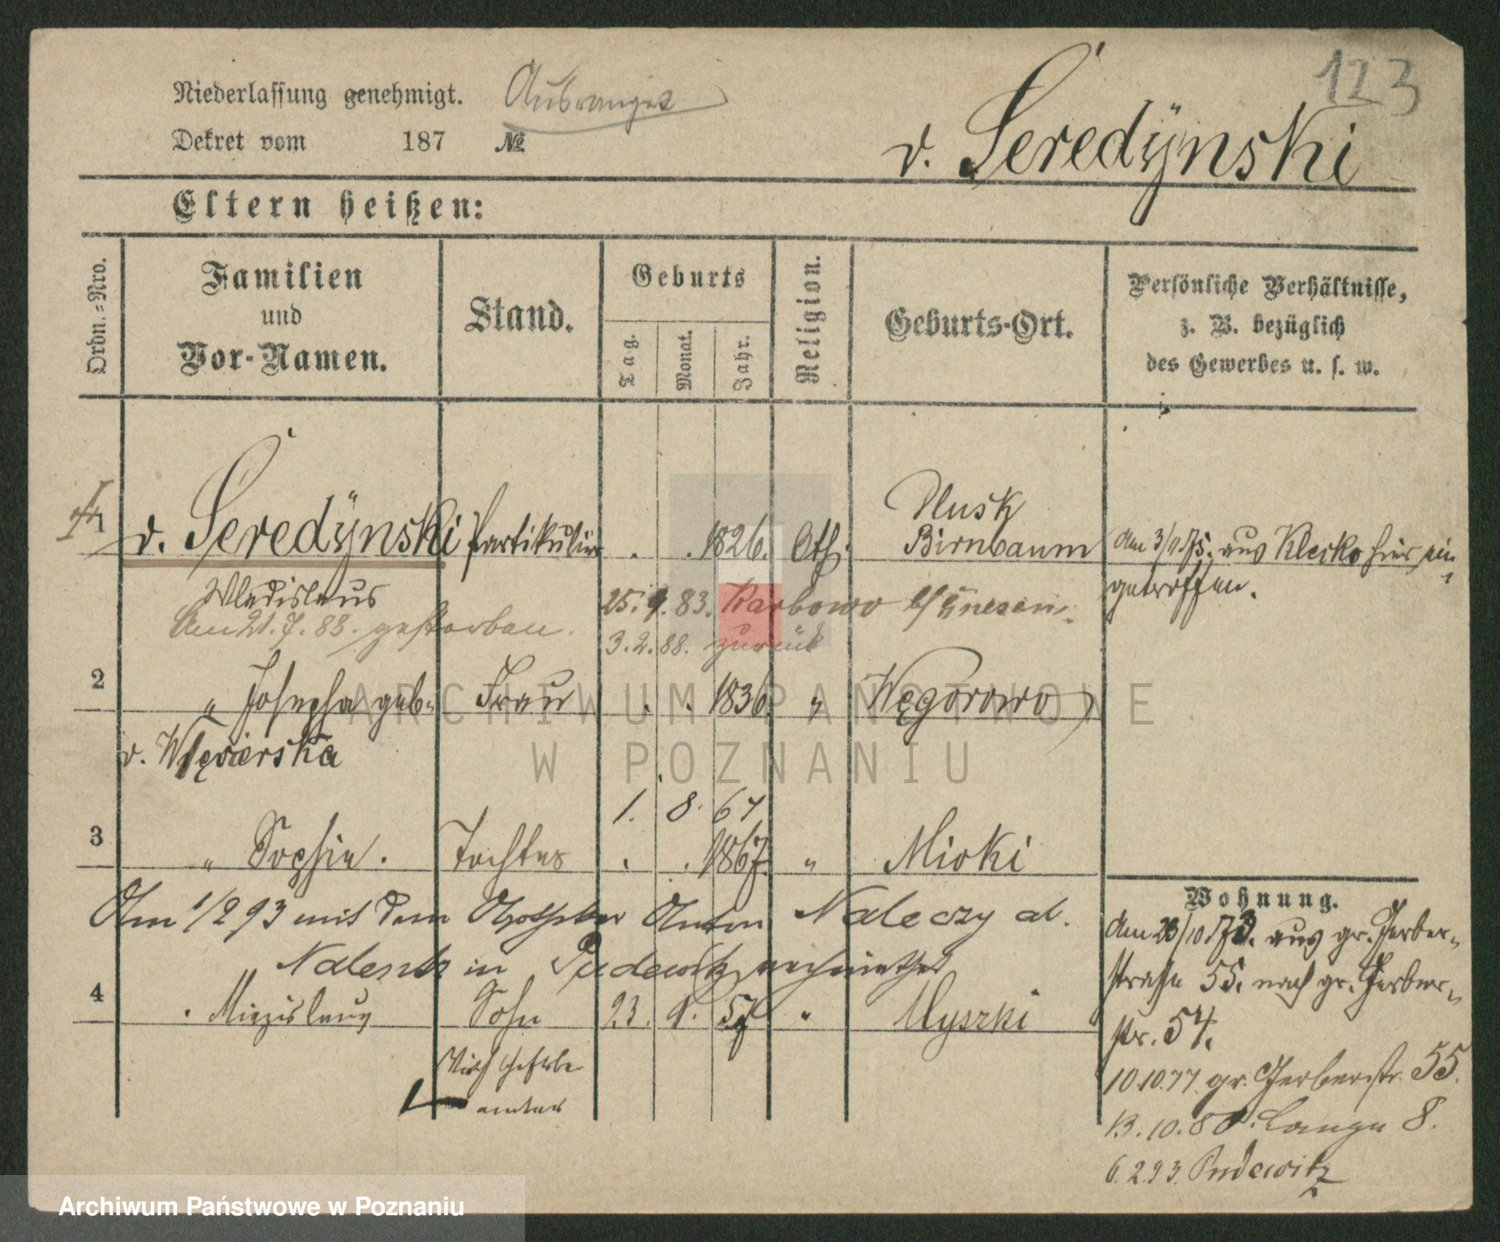 123
Niederlassung genehmigt.
Dekret vom 187 №
v. Seredÿnski
Eltern heißen:
Ordn.-Nro.
Familien
und
Vor-Namen.
Stand.
Geburts
Tag.
Monat.
Jahr.
Religion.
Geburts-Ort.
Persönliche Verhältnisse,
z. B. bezüglich
des Gewerbes u. s. w.
1 v. Seredÿnski Partikulier . . 1826.
Birnbaum
Am aus Klecko hier ein-
getroffen.
Wladislaus
25. 9. 83. Karbowo b/Gnesen.
Am 21. 7. 83. gestorben.
3. 2. 88. zurück
2 " Josepha geb. Frau . . 1836. " Węgorowo
v.
1. 8. 67
3 " Sophie. Tochter . . 1867. " Mioki
Am 1/2 93 mit dem Apotheker Anton Naleczy al.
in Pudewitz verheirathet
4 " Miezislaus Sohn 23. 9. 57 " Myszki
Wirthschafts
beamter
Wohnung.
Am 23/10 73. aus gr. Gerber-
straße 55. nach gr. Gerber-
str. 54.
10.10.77. gr. Gerberstr. 55.
13.10.80. Lange 8.
6.2.93. Pudewitz
ARCHIWUM PAŃSTWOWE
W POZNANIU
Archiwum Państwowe w Poznaniu